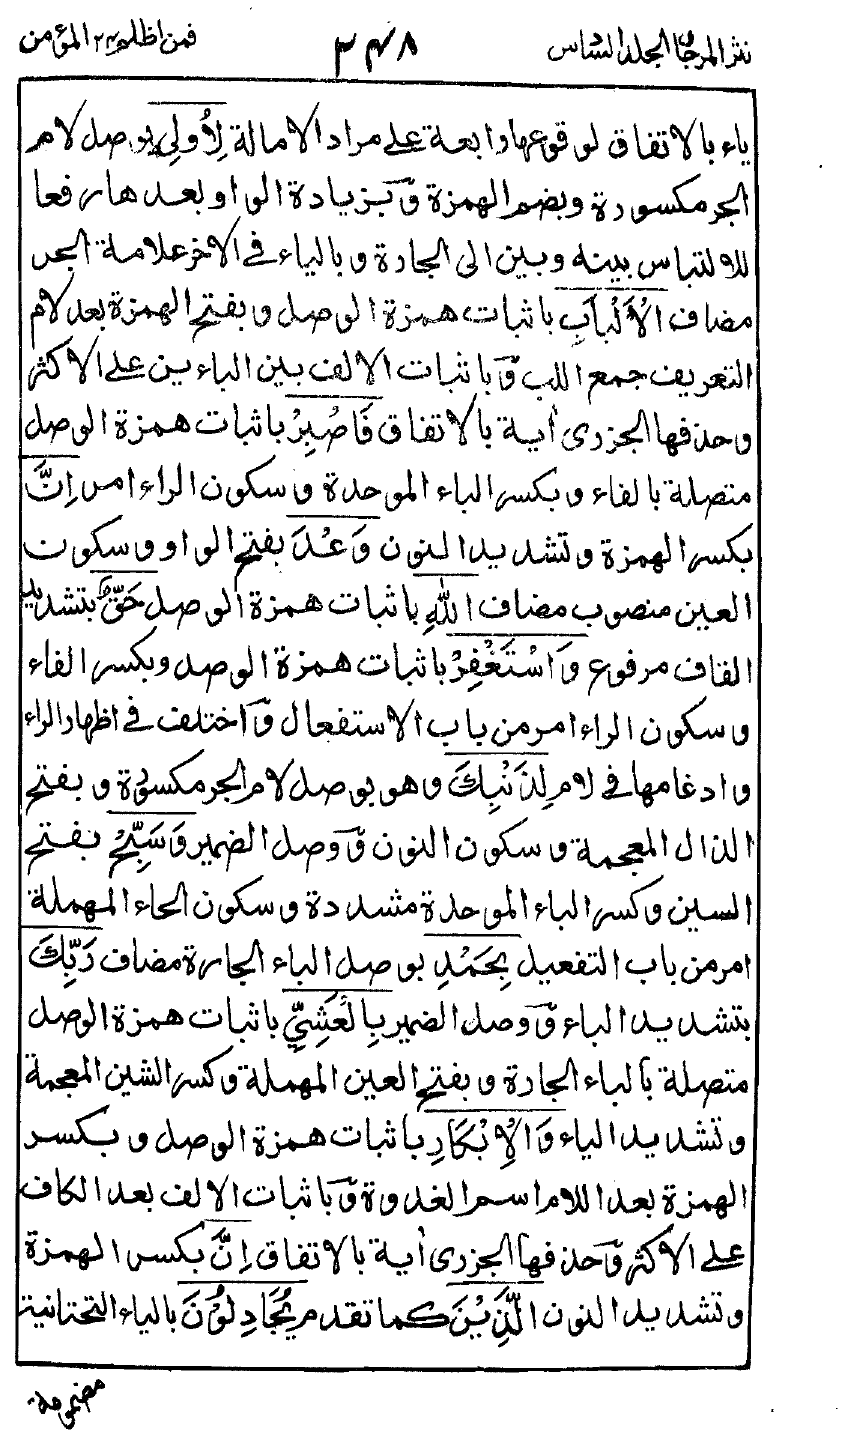 نثر المرجان الجلد السادس ۳۴۸ فمن اظلم ۲۴ المؤمن
ياء بالاتفاق لوقوعها رابعة على مراد الامالة لِأُولِي بوصل لام
الجر مكسورة وبضم الهمزة وَبزيادة الواو بعدها رفعا
للالتباس بينه وبين الى الجارة وبالياء في الاخر علامة الجر
مضاف الْأَلْبَابِ باثبات همزة الوصل وبفتح الهمزة بعد لام
التعريف جمع اللب وَباثبات الالف بين الباءين على الاكثر
وحذفها الجزرى اٰية بالاتفاق فَاصْبِرْ باثبات همزة الوصل
متصلة بالفاء وبكسر الباء الموحدة وسكون الراء امر اِنَّ
بكسر الهمزة وتشديد النون وَعْدَ بفتح الواو وسكون
العين منصوب مضاف اللّٰهِ باثبات همزة الوصل حَقٌّ بتشديد
القاف مرفوع وَاسْتَغْفِرْ باثبات همزة الوصل وبكسر الفاء
وسكون الراء امر من باب الاستفعال وَاختلف في اظهار الراء
وادغامها في لام لِذَنْبِكَ وهو بوصل لام الجر مكسورة وبفتح
الذال المعجمة وسكون النون وَوصل الضمير وَسَبِّحْ بفتح
السين وكسر الباء الموحدة مشددة وسكون الحاء المهملة
امر من باب التفعيل بِحَمْدِ بوصل الباء الجارة مضاف رَبِّكَ
بتشديد الباء وَوصل الضمير بِالْعَشِيِّ باثبات همزة الوصل
متصلة بالباء الجارة وبفتح العين المهملة وكسر الشين المعجمة
وتشديد الياء وَالْاِبْكَارِ باثبات همزة الوصل وبكسر
الهمزة بعد اللام اسم الغدوة وَباثبات الالف بعد الكاف
على الاكثر وَحذفها الجزرى اٰية بالاتفاق اِنَّ بكسر الهمزة
وتشديد النون الَّذِيْنَ كما تقدم يُجَادِلُوْنَ بالياء التحتانية
مضمومة